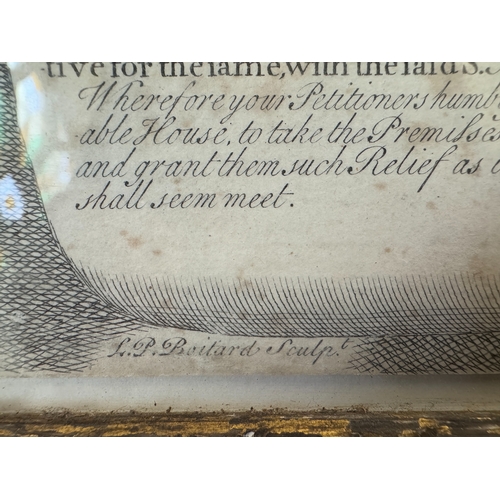 tive for the same, with the said S.S
Wherefore your Petitioners humb
able House, to take the Premisses
and grant them such Relief as
shall seem meet.
L.P. Boitard Sculp.t